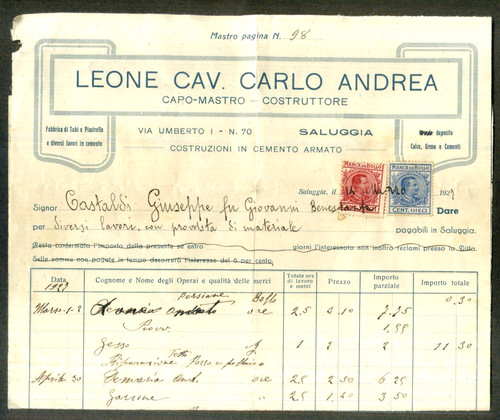 Mastro pagina N. 98
LEONE CAV. CARLO ANDREA
CAPO-MASTRO - COSTRUTTORE
Fabbrica di Tubi e Piastrelle
e diversi lavori in cemente
VIA UMBERTO I - N. 70 SALUGGIA
deposito
Calce, Gesso e Cementi
COSTRUZIONI IN CEMENTO ARMATO
MARCA DA BOLLO MARCA DA BOLLO
CENT. DIECI
Saluggia, il Marzo 1927
Signor Castaldi Giuseppe fu Giovanni Benestante Dare
per diversi lavori, con provvista di materiale pagabili in Saluggia.
Resta confermato l'importo della presente se entro giorni l'interessato non inoltra reclami presso la Ditta.
Sulle somme non pagate in tempo decorrerà l'interesse del 6 per cento.
Data Cognome e Nome degli Operai e qualità delle merci Totale ore di lavoro e merci Prezzo Importo parziale Importo totale
1927
Persiane Bollo 0 30
Marzo 1-2 ore 2,5 3 10 7 75
Gesso 1 2 2 11 30
Tetti
Riparazione
Aprile 30 Demaria ore 2,5 2 50 6 25
Garzone 2,5 1 20 3 50